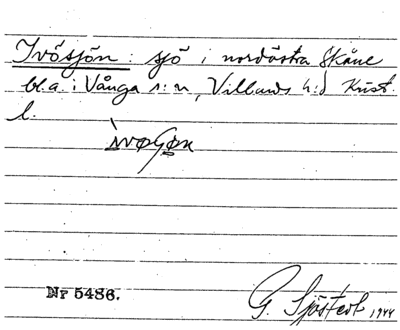 Ivösjön: sjö i nordöstra Skåne
bl.a. i Vånga s:n, Villands h:d Krist.
l.
Nr 5486.
G. Sjöstedt 1944